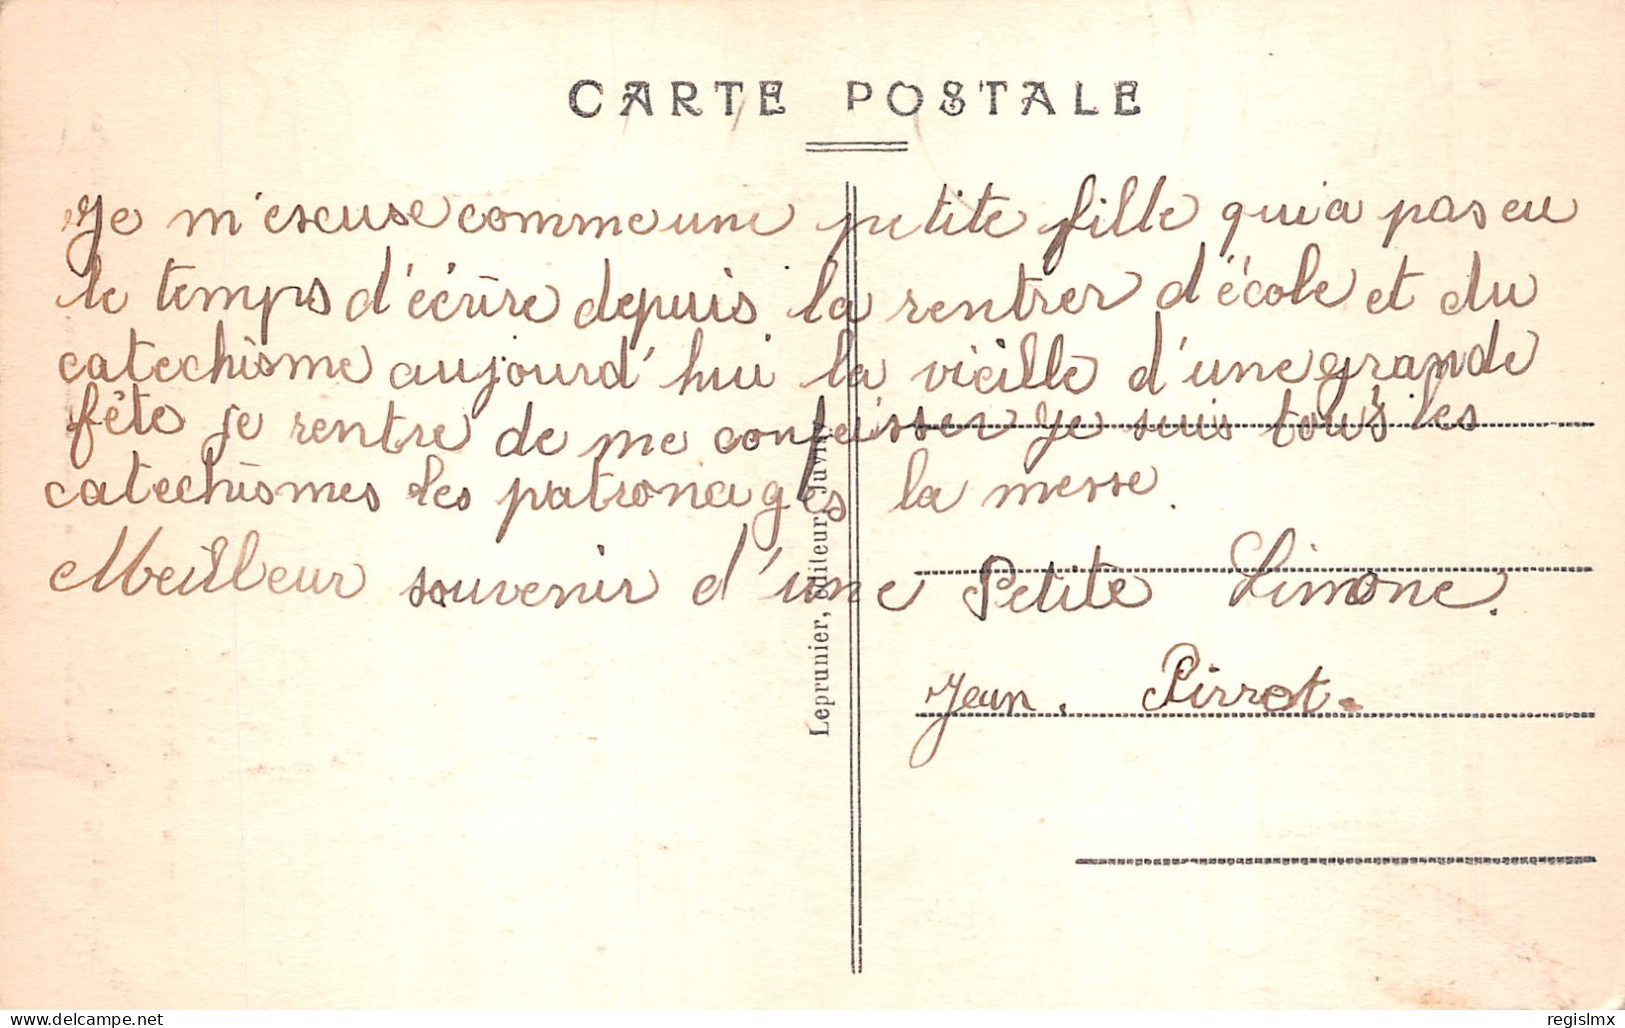 CARTE POSTALE
Je m'escuse comme une petite fille qui a pas eu
le temps d'écrire depuis la rentrer d'école et du
catechisme aujourd'hui la vieille d'une grande
fête je rentre de me confaisser je suis tous les
catechismes les patronages la messe.
Meilleur souvenir d'une Petite Simone.
Jean. Pirrot.
Leprunier, éditeur, Juvi
regislmx